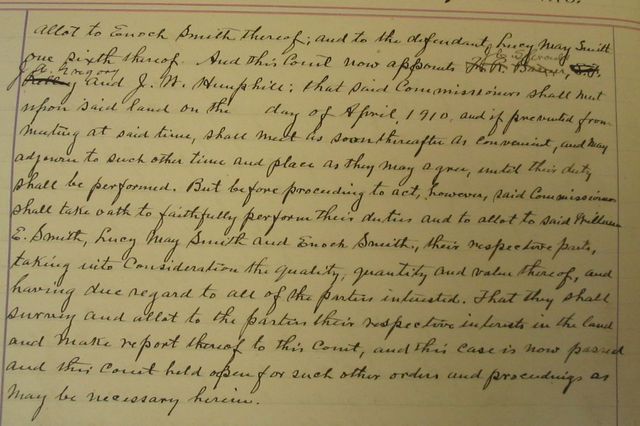 allot to Enoch Smith thereof; and to the defendant, Lucy May Smith
one sixth thereof. And this Court now appoints
and J. W. Humphill; that said Commissioners shall meet
upon said land on the day of April, 1910, and if prevented from
meeting at said time, shall meet as soon thereafter as convenient, and may
adjourn to such other time and place as they may agree, until their duty
shall be performed. But before proceeding to act, however, said Commissioners
shall take oath to faithfully perform their duties and to allot to said William
E. Smith, Lucy May Smith and Enoch Smith, their respective parts,
taking into Consideration the quality, quantity and value thereof, and
having due regard to all of the parties interested. That they shall
survey and allot to the parties their respective interests in the land
and make report thereof to this Court, and this case is now passed
and this Court held open for such other orders and proceedings as
may be necessary herein.